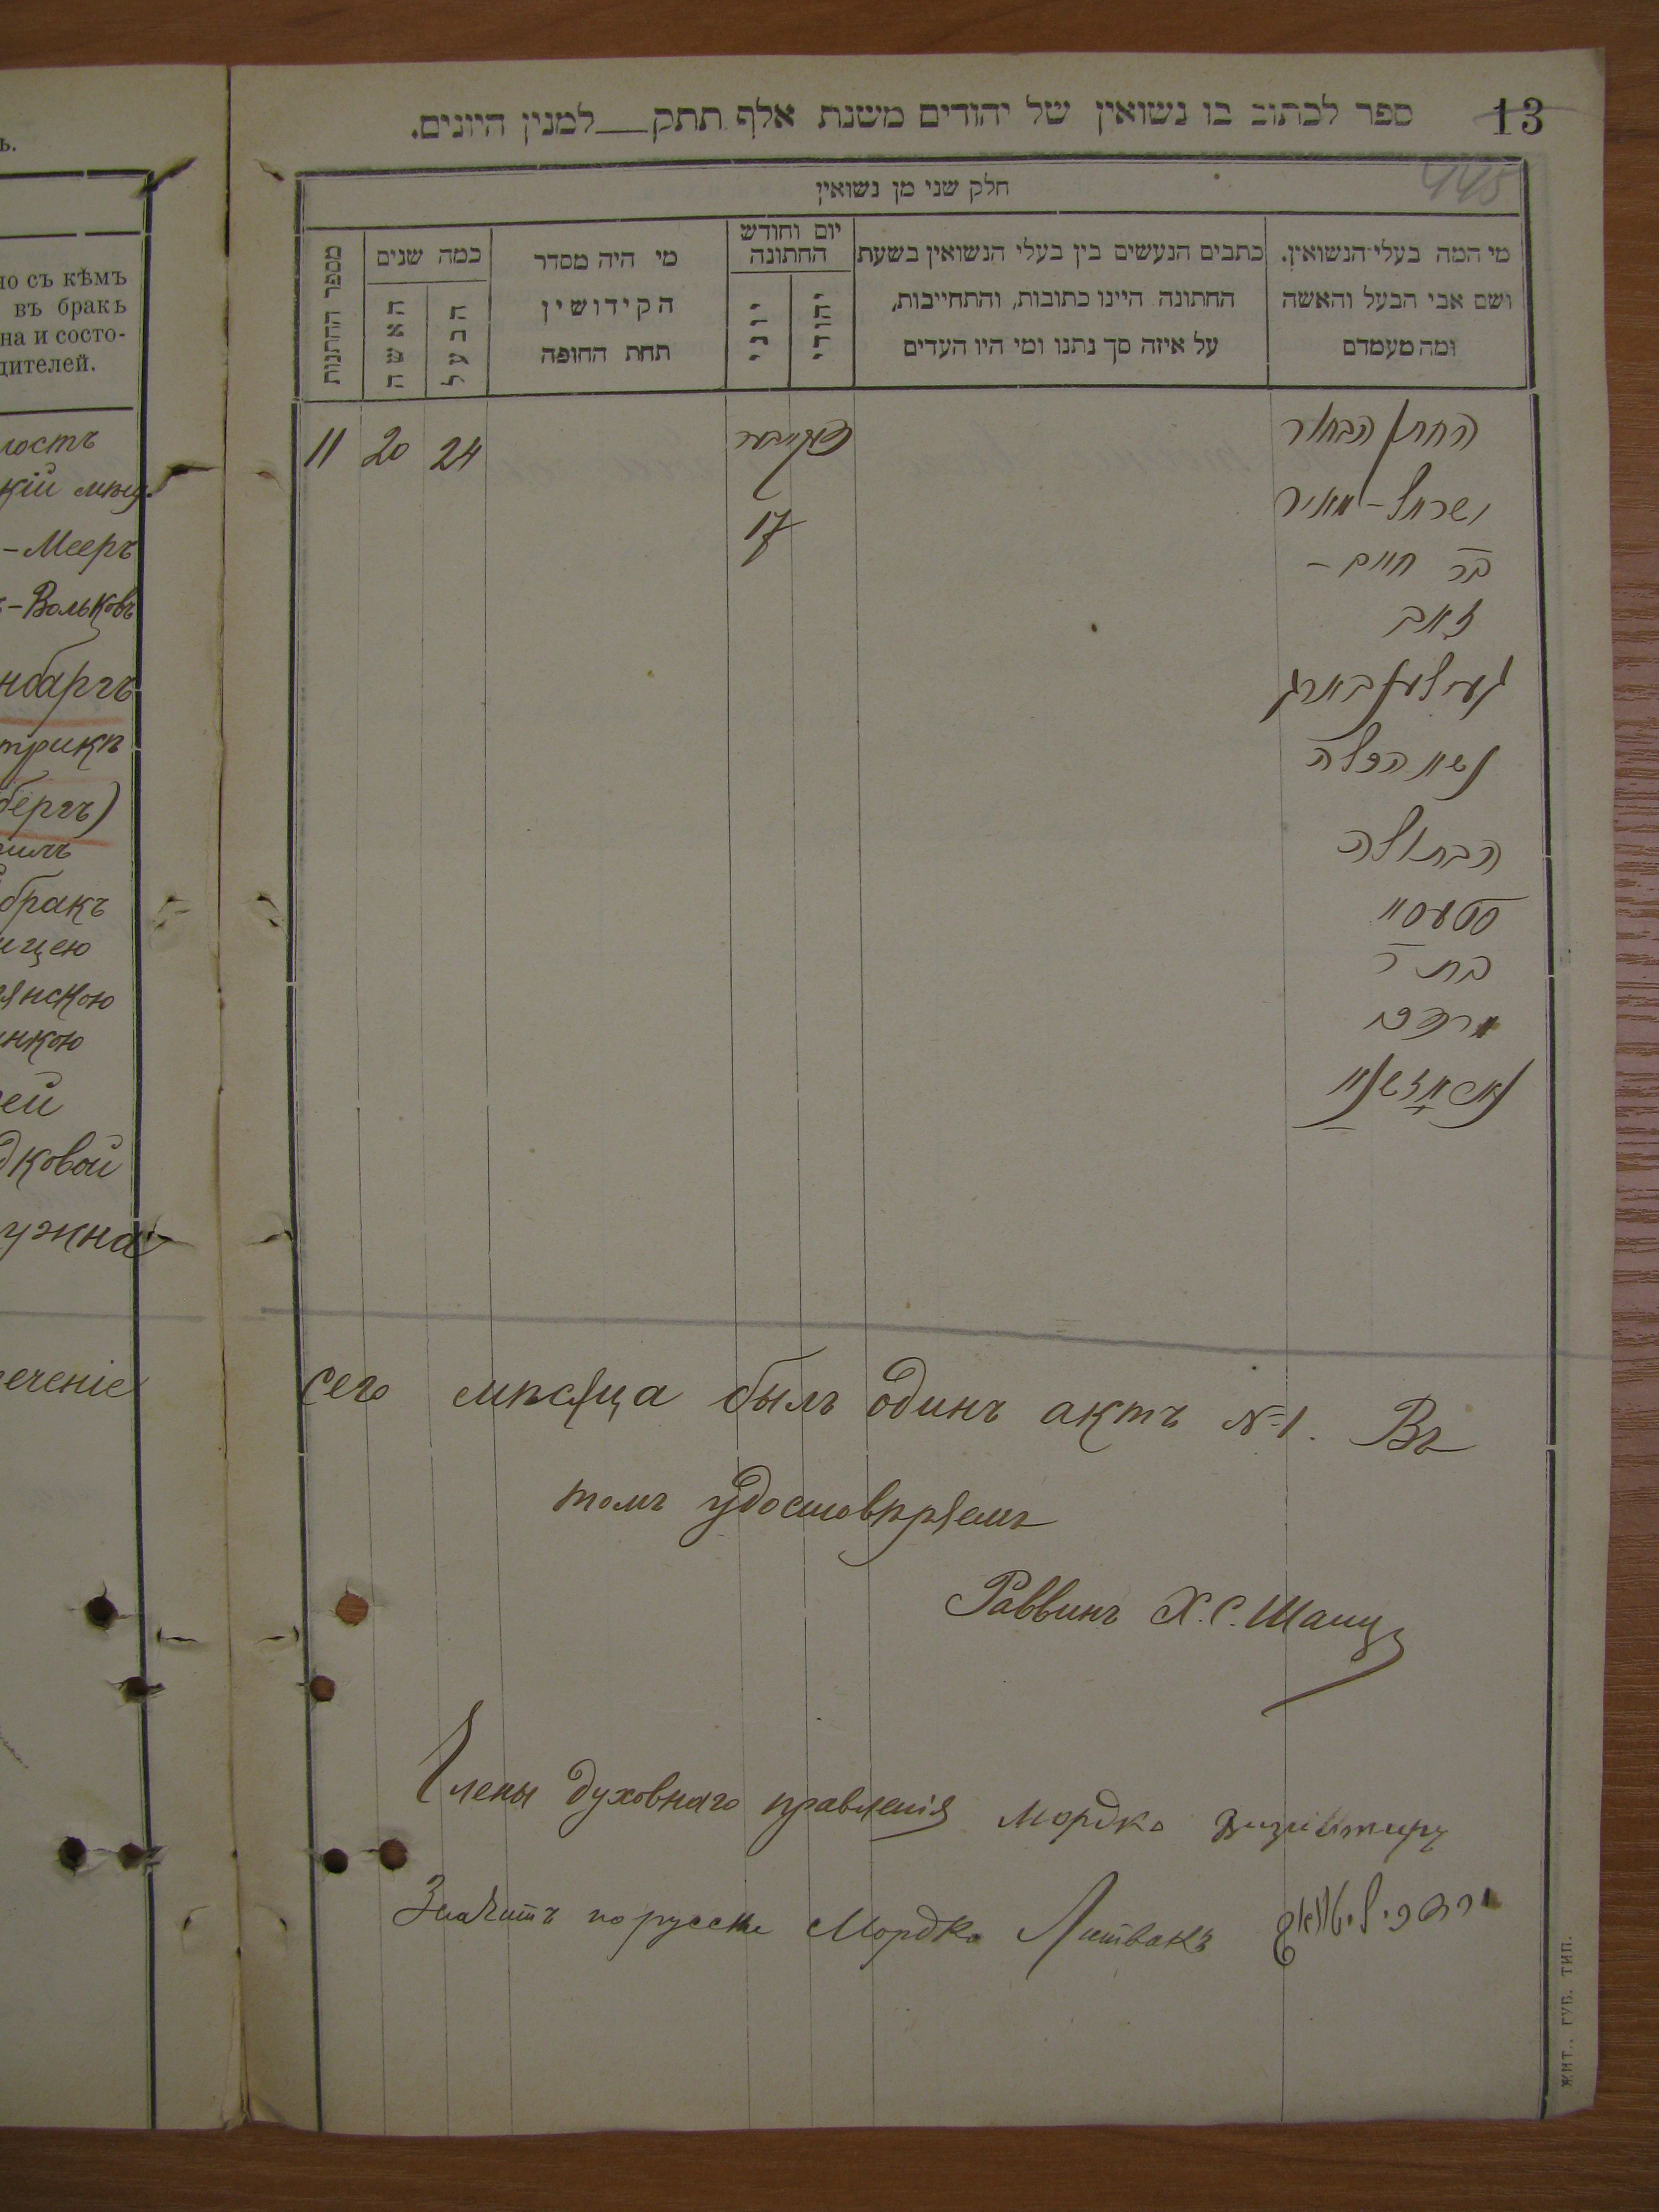 ь.
но съ кѣмъ
въ бракъ
на и состо-
дителей.
-Мееръ
-Вольковъ
нбаргъ
трикъ
бергъ)
бракъ
ицею
янскою
нкою
ей
дковой
ужна
ечение
13
ספר לכתוב בו נשואין של יהודים משנת אלף תתק__למנין היונים.
445
חלק שני מן נשואין
מי המה בעלי־הנשואין.
ושם אבי הבעל והאשה
ומה מעמדם
כתבים הנעשים בין בעלי הנשואין בשעת
החתונה היינו כתובות, והתחייבות,
על איזה סך נתנו ומי היו העדים
יום וחודש
החתונה
יהודי
יוני
מי היה מסדר
הקידושין
תחת החופה
כמה שנים
הבעל
האשה
מספר החתנות
החתן הבחור
ישראל-מאיר
בר חיים-
זאב
געלענבארג
נשא הכלה
הבתולה
בת ר
מרדכי
11 20 24
17
сего мѣсяца былъ одинъ актъ №1. Въ
томъ удостовѣряемъ
Раввинъ Х.С. Шанц
Члены духовнаго правленія Мордко
Значитъ по русски Мордко Литвакъ
מרדכי ליטוואק
ЖИТ., ГУБ. ТИП.